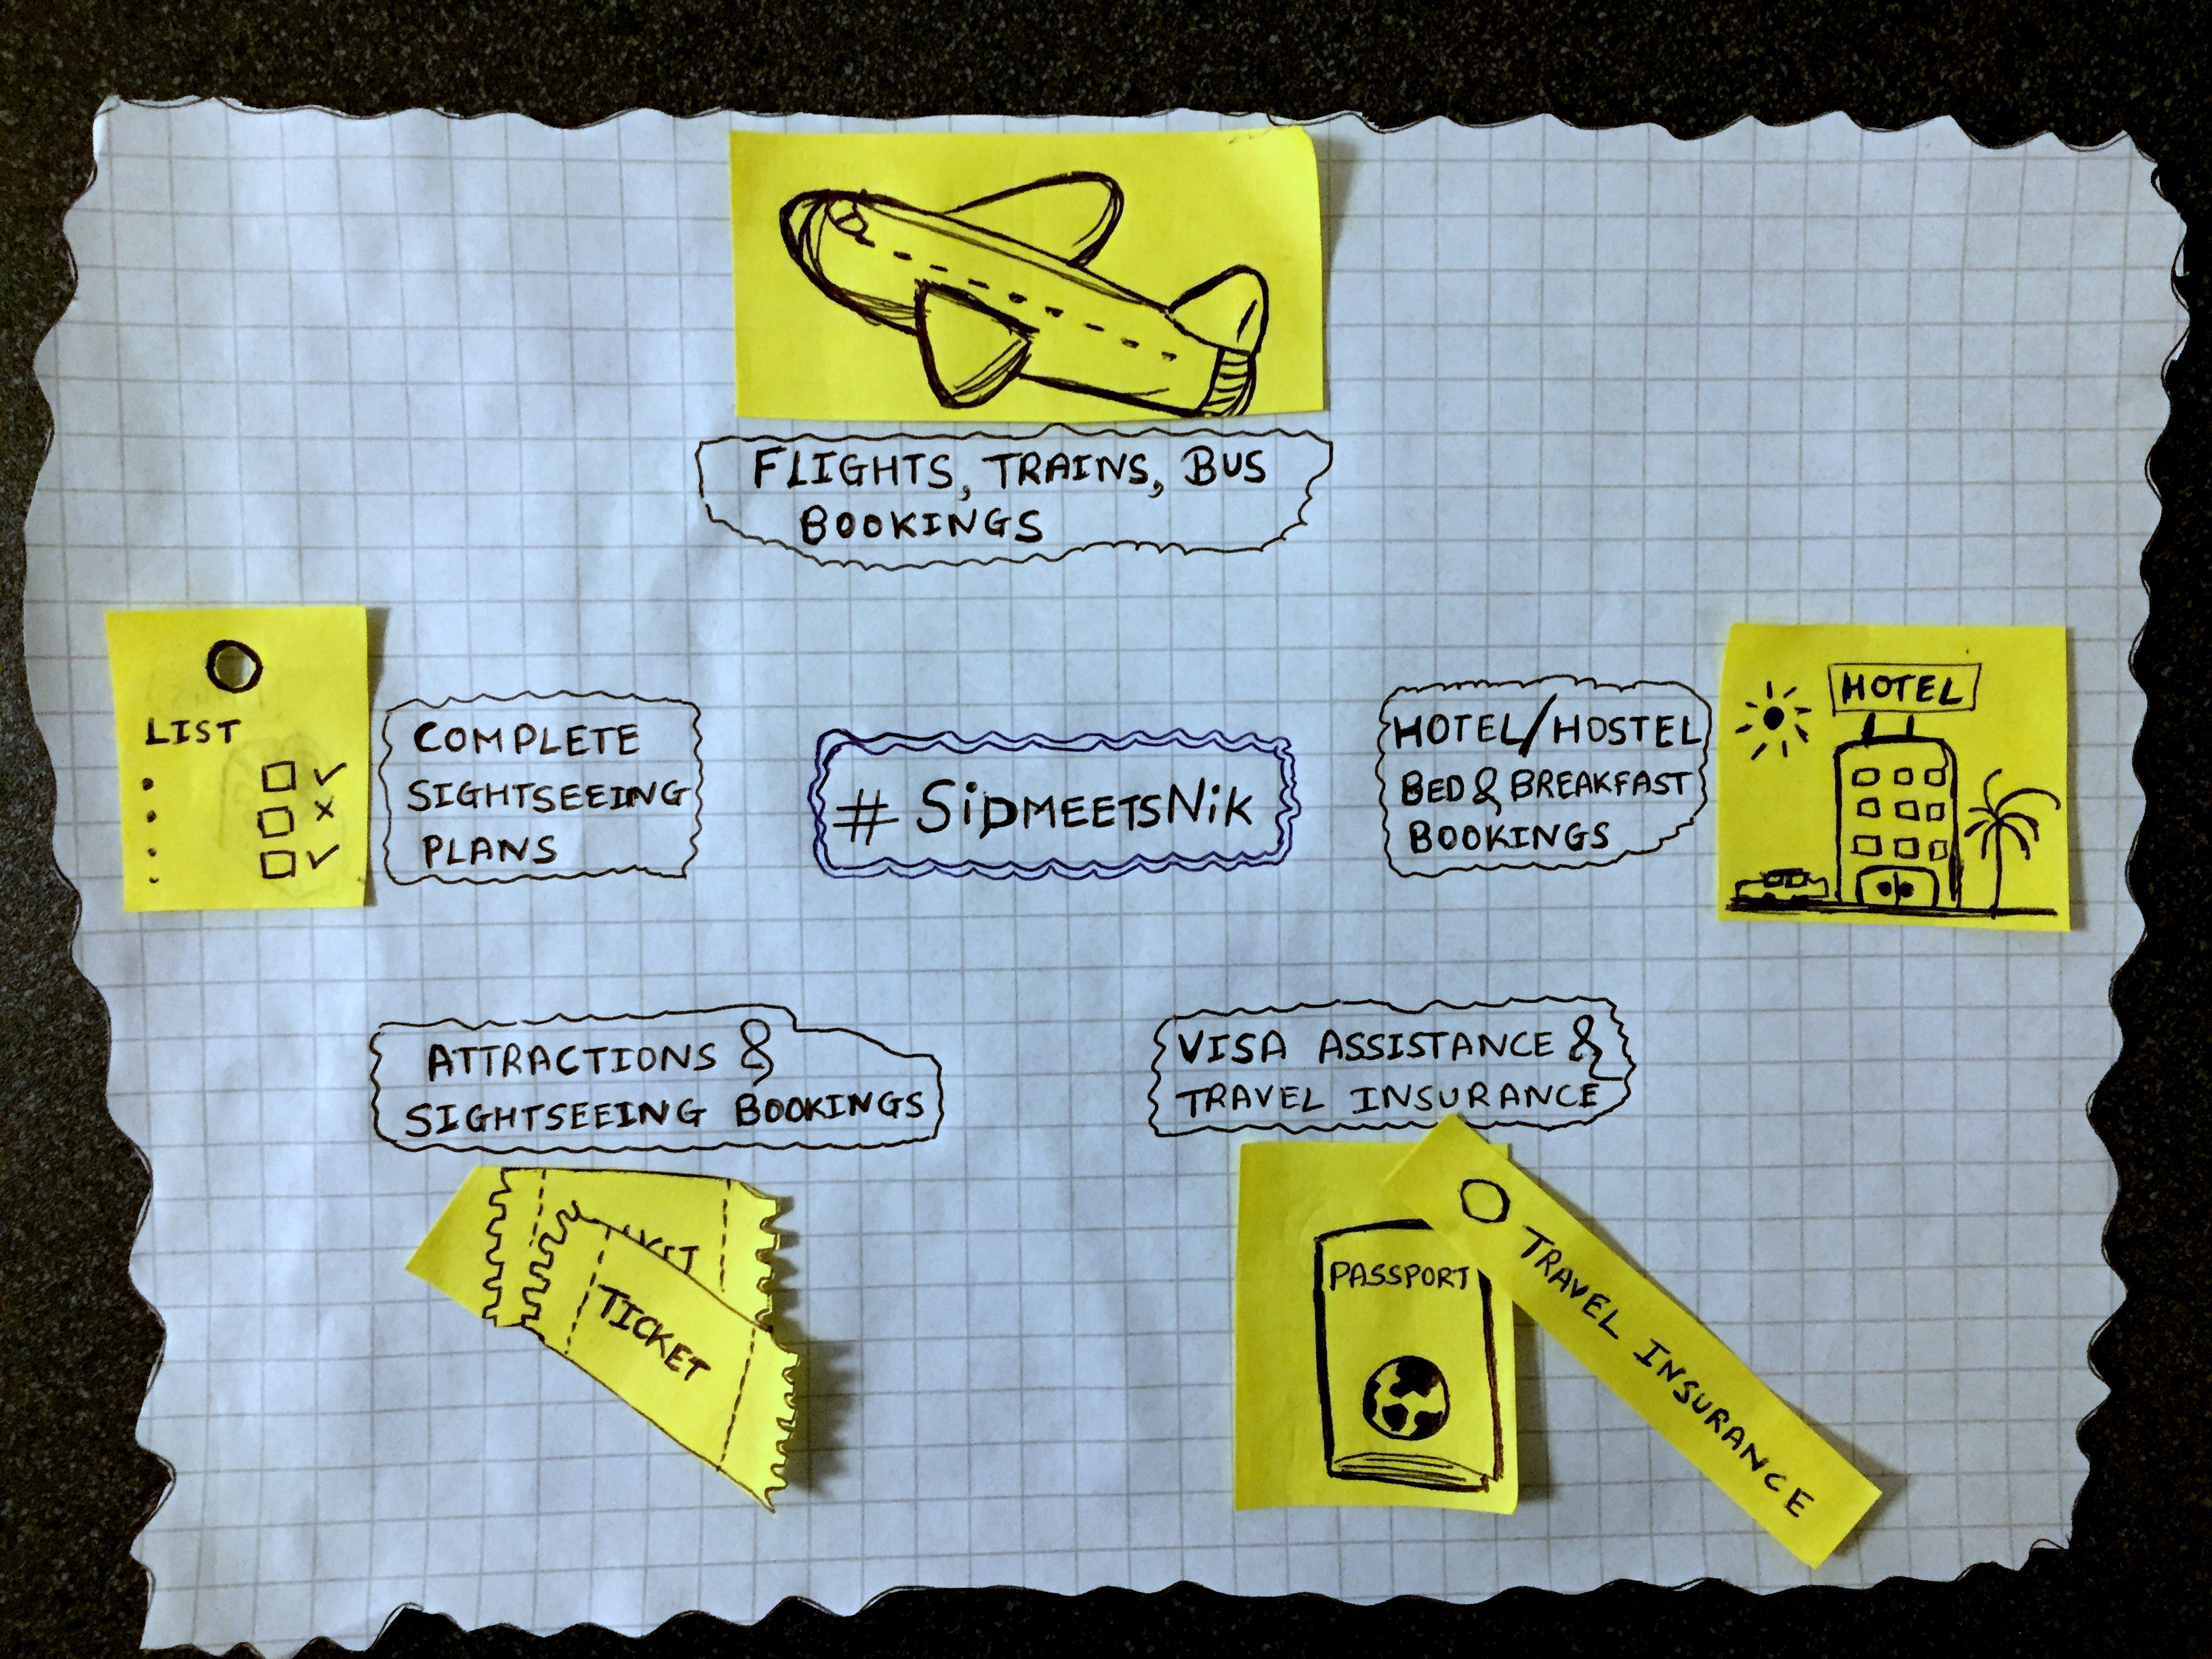 FLIGHTS, TRAINS, BUS
BOOKINGS
LIST
COMPLETE
SIGHTSEEING
PLANS
# SiDMEETSNiK
HOTEL/HOSTEL
BED & BREAKFAST
BOOKINGS
HOTEL
ATTRACTIONS &
SIGHTSEEING BOOKINGS
VISA ASSISTANCE &
TRAVEL INSURANCE
TICKET
PASSPORT
TRAVEL INSURANCE